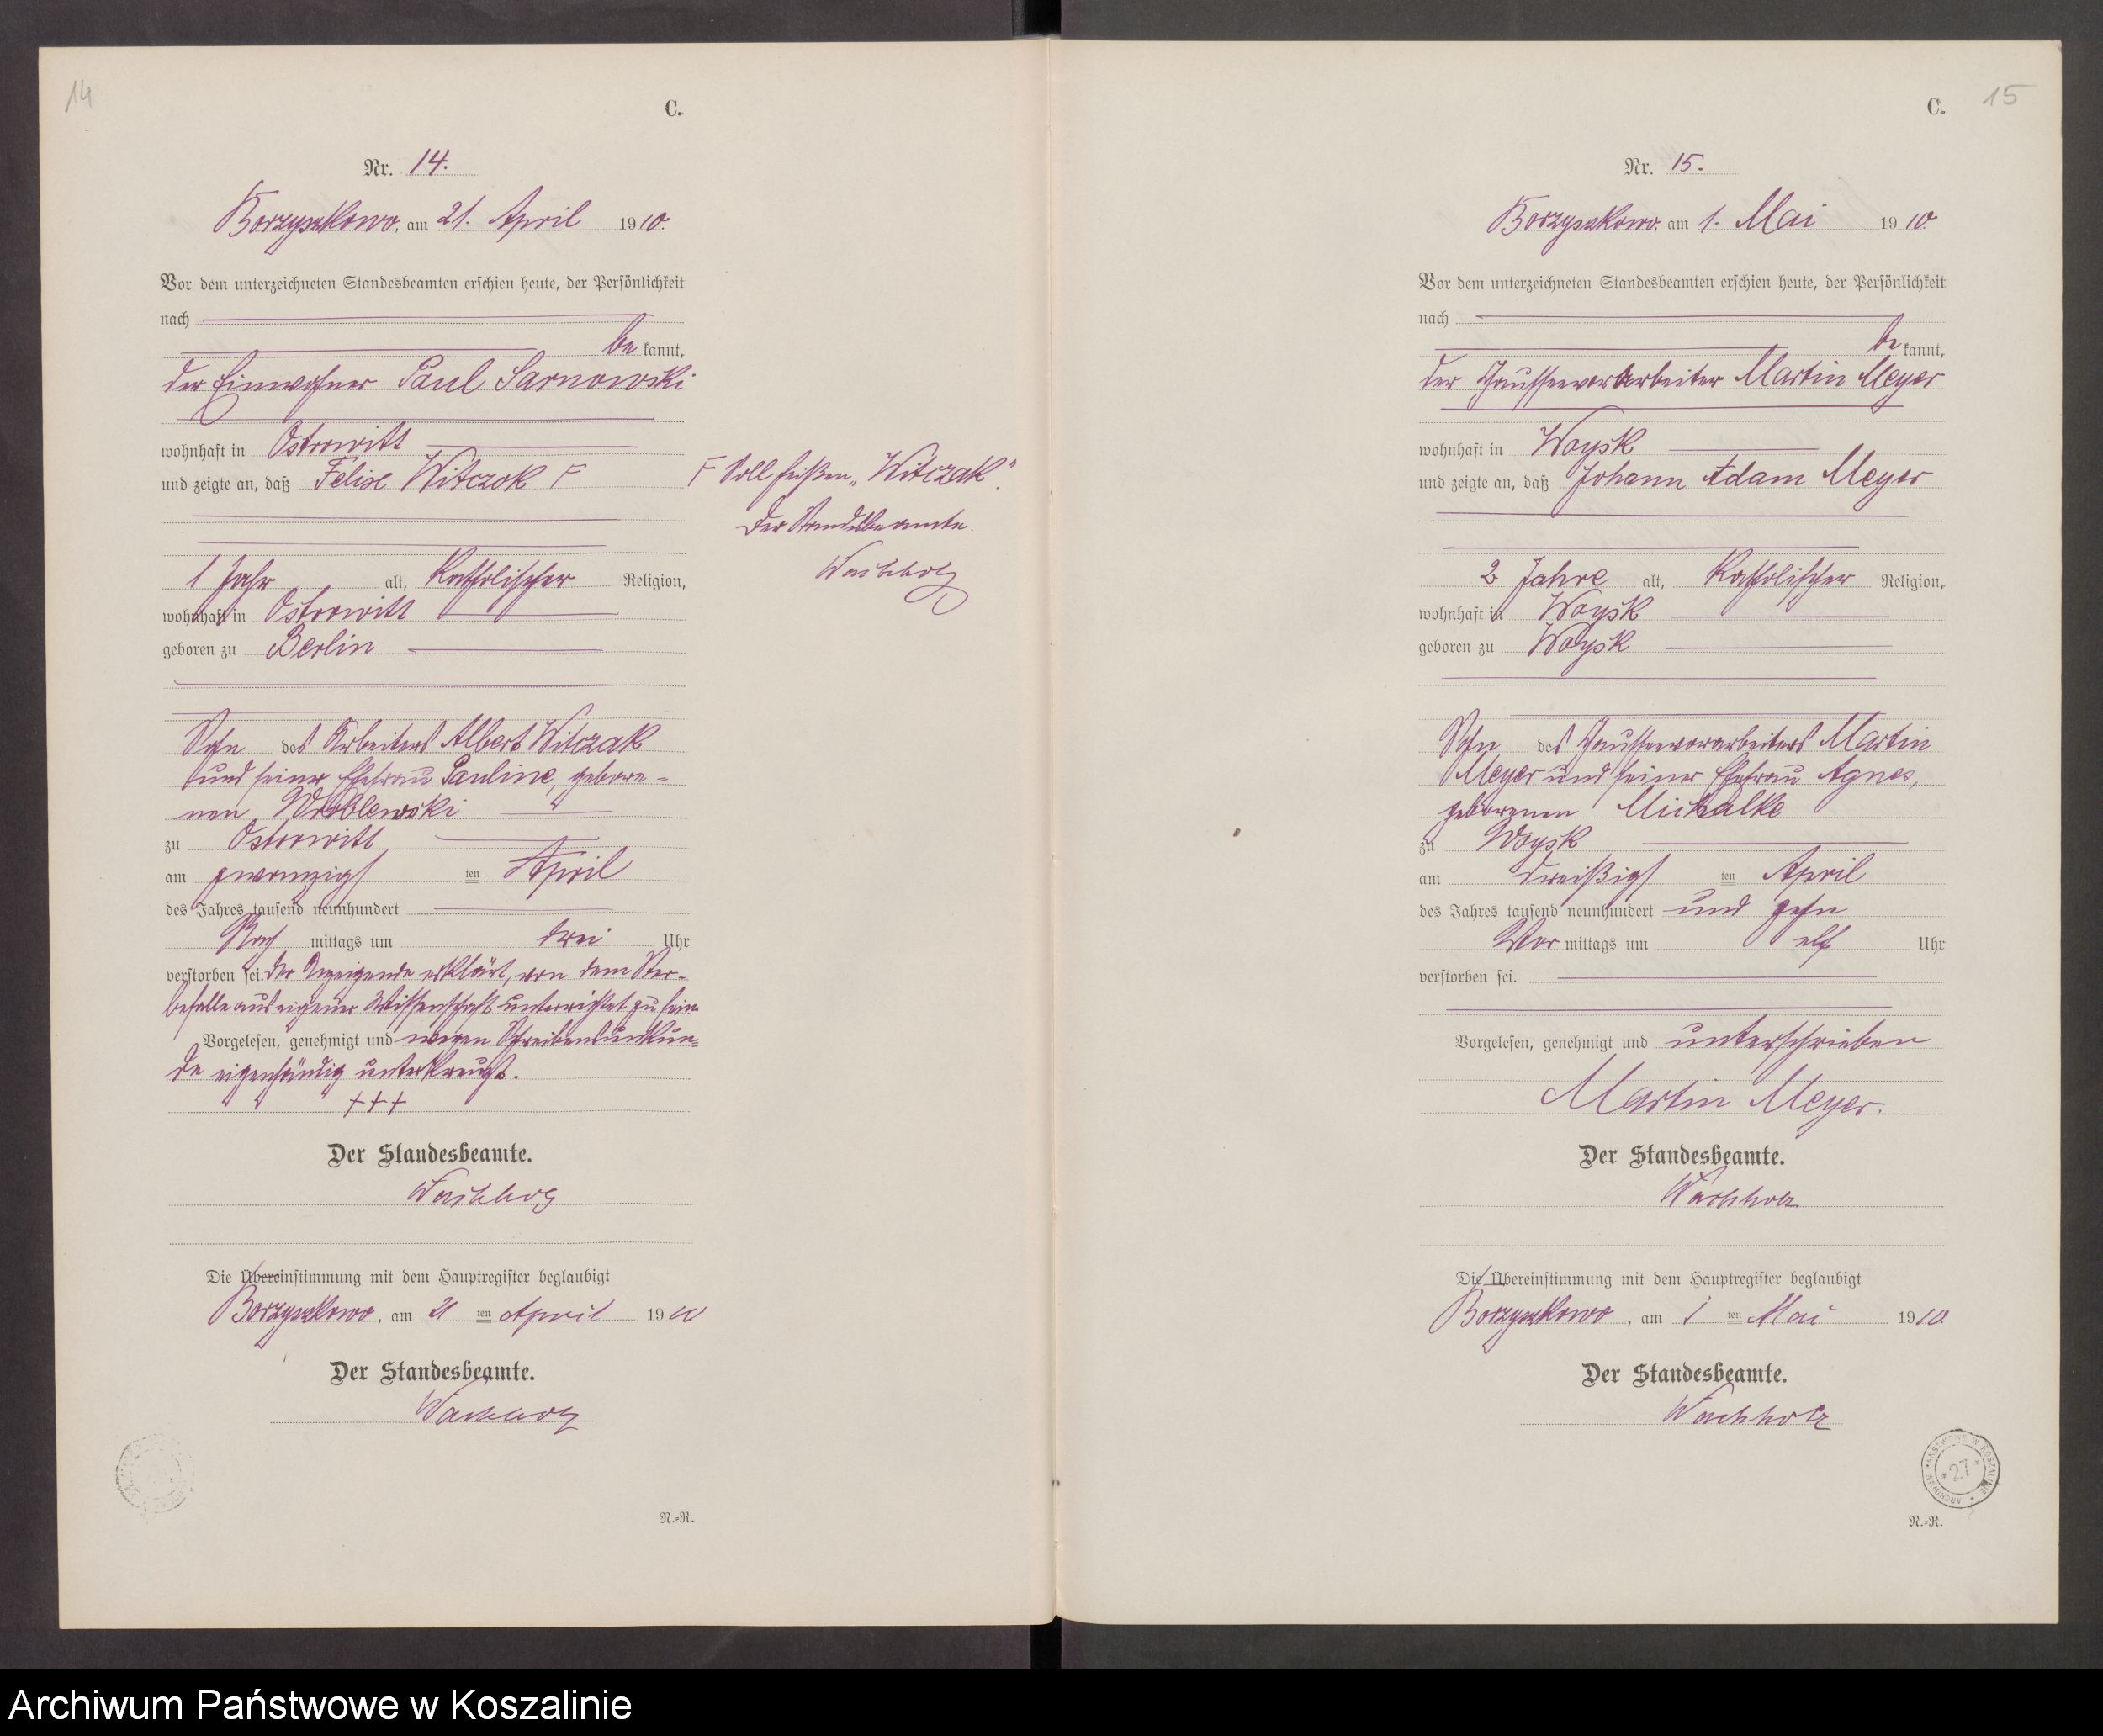 14
C.
Nr. 14.
Borzyszkowo, am 21. April 1910.
Vor dem unterzeichneten Standesbeamten erschien heute, der Persönlichkeit
nach
be kannt,
der Einwohner Paul Sarnowski
wohnhaft in Ostrowitt
und zeigte an, daß Felix Witczok F
F Soll heißen „Witczak".
Der Standesbeamte.
Wachholz
1 Jahr alt, katholischer Religion,
wohnhaft in Ostrowitt
geboren zu Berlin
Sohn des Arbeiters Albert Witczak
und seiner Ehefrau Pauline, gebore-
nen Wroblewski
zu Ostrowitt
am zwanzigs ten April
des Jahres tausend neunhundert
Nach mittags um drei Uhr
verstorben sei. Der Anzeigende erklärt, von dem Ster-
befalle aus eigener Wissenschaft unterrichtet zu sein.
Vorgelesen, genehmigt und wegen Schreibensunkun-
de eigenhändig unterkreuzt.
+++
Der Standesbeamte.
Wachholz
Die Übereinstimmung mit dem Hauptregister beglaubigt
Borzyszkowo, am 21 ten April 1910
Der Standesbeamte.
Wachholz
N.-R.
15
C.
Nr. 15.
Borzyszkowo, am 1. Mai 1910.
Vor dem unterzeichneten Standesbeamten erschien heute, der Persönlichkeit
nach
be kannt,
der Chausseevorarbeiter Martin Meyer
wohnhaft in Woysk
und zeigte an, daß Johann Adam Meyer
2 Jahre alt, katholischer Religion,
wohnhaft in Woysk
geboren zu Woysk
Sohn des Chausseevorarbeiters Martin
Meyer und seiner Ehefrau Agnes,
geborenen Michalke
zu Woysk
am dreißigs ten April
des Jahres tausend neunhundert und zehn
Vor mittags um elf Uhr
verstorben sei.
Vorgelesen, genehmigt und unterschrieben
Martin Meyer.
Der Standesbeamte.
Wachholz
Die Übereinstimmung mit dem Hauptregister beglaubigt
Borzyszkowo, am 1 ten Mai 1910.
Der Standesbeamte.
Wachholz
ARCHIWUM PAŃSTWOWE W KOSZALINIE
* 27 *
N.-R.
Archiwum Państwowe w Koszalinie